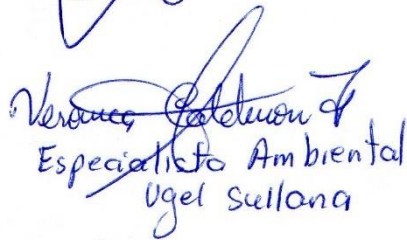 Veronica Calderon F
Especialista Ambiental
Ugel Sullana